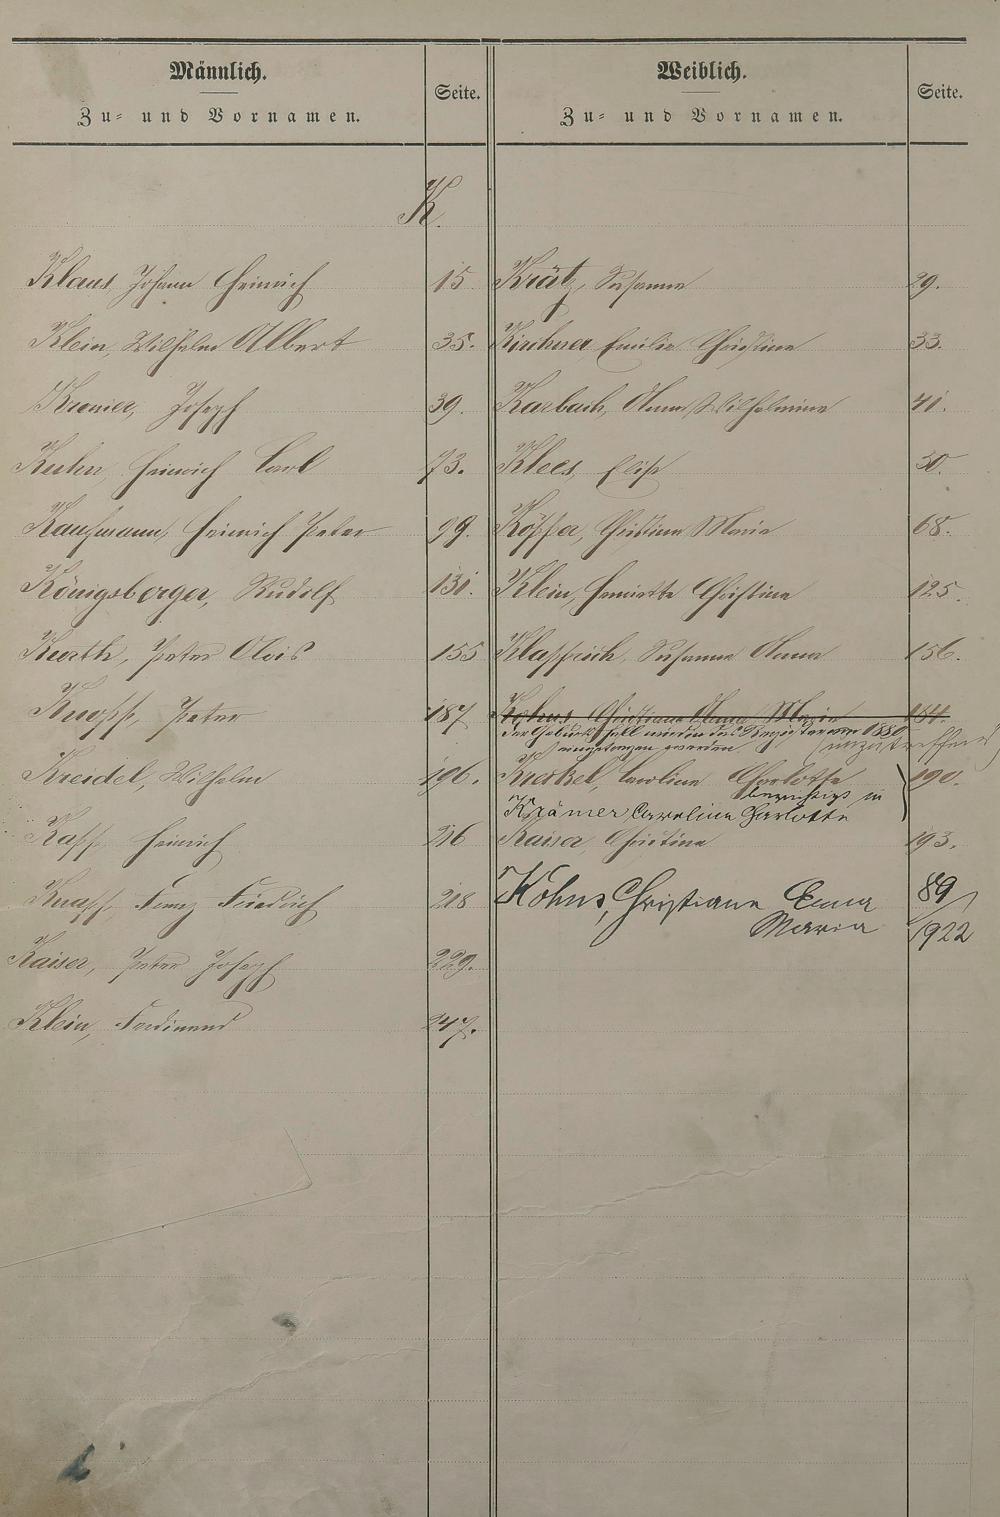 Männlich.
Zu- und Vornamen.
Seite.
Weiblich.
Zu- und Vornamen.
Seite.
K.
Klaus, Johann Heinrich 15
Krätz, Susanna 29.
Klein, Wilhelm Albert 35.
Kirchner Emilie Christine 33.
Kremer, Joseph 39.
Karbach, Anna Wilhelmine 41.
Kuhn, Heinrich Carl 73.
Klees, Elise 50.
Kaufmann, Heinrich Peter 99.
Christina Maria 68.
Königsberger, Rudolf 131.
Klein, Henriette Christine 125.
Kurth, Peter Alois 155
Susanna Anna 156.
Knopp, Peter 187
Kohns Christiane Anna Maria 184.
der Geburtsfall wurde in das Register von 1880
eingetragen worden
Kreidel, Wilhelm 196.
Caroline Charlotte 190.
berichtigt in
Krämer Caroline Charlotte
Kapp Heinrich 216
Kaiser, Christina 193.
Knapp, Franz Friedrich 218
Kohns, Christiane Anna 89/
Maria 1922
Kaiser, Peter Joseph 229.
Klein, Ferdinand 247.